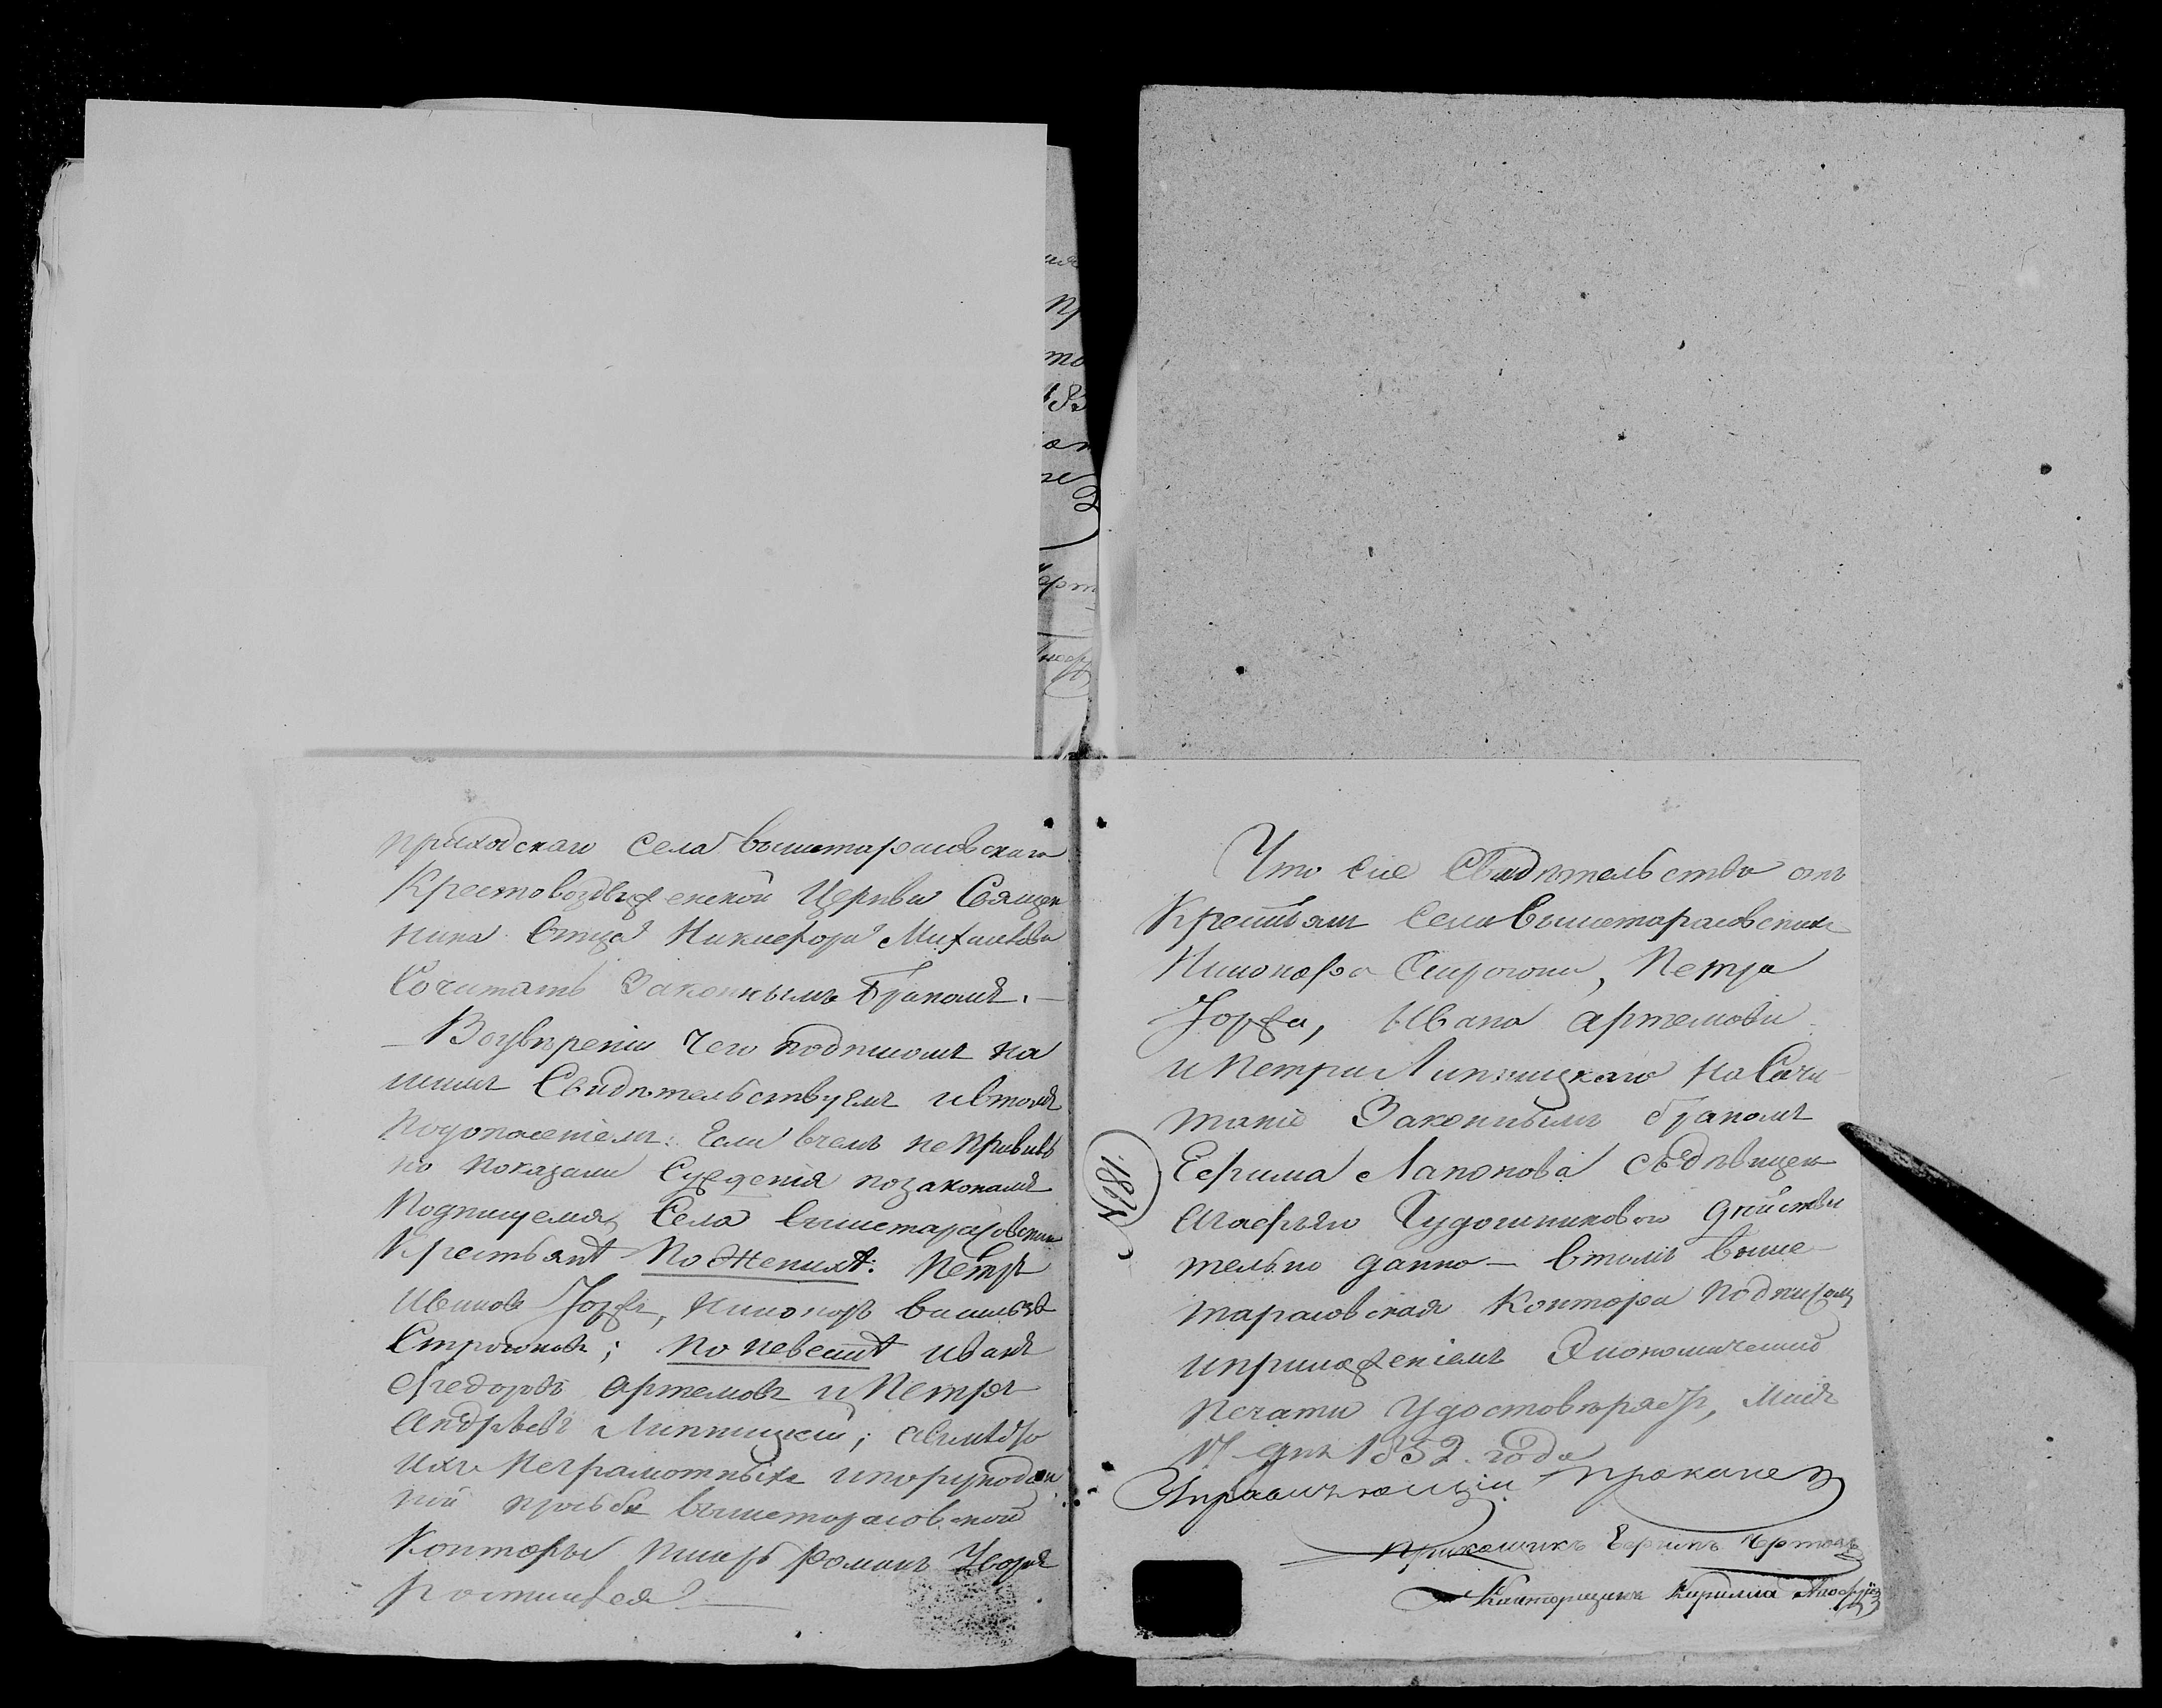 приходскаго села вышетарасовскаго
Крестовоздвиженской Церкви Священ
ника Отца Никифора Михаилова
Сочитать Законнымъ бракомъ.—
— Воувѣреніи чего подписомъ на
шимъ Свидѣтельствуемъ ивтомъ
Если вчемъ неправиль
но показали Сужденія позаконамъ
Подпишемся, Села вышетарасовскаго
Крестьянѣ По Женихѣ: Петръ
Ивановъ Никоноръ васильевъ
Строгоновъ; По невестѣ иванъ
Федоровъ Артемовъ и Петръ
Андрѣевъ Липницкій; авместо
ихъ Неграмотныхъ ипорукодан
ной прозьбе вышетарасовской
Конторы писарь романъ
росписался —
Что сие Свидѣтельство отъ
Крестьянъ Села Вышетарасовскихъ
Никонора Строгонова, Петра
Ивана артемова
и Петра Липницкаго на Сочи
таніе Законнымъ бракомъ
Ефима Лапонова сѣдѣвицею
Агафьею Чудошниковою дѣйстви
тельно данно — втомъ выше
тарасовская Контора подписом
иприложеніемъ Экономическо
печати Удостовѣряетъ, Маія
дня 1852 года
Управляющій
Прикащикъ Ефимъ
Конторщикъ Кирилла